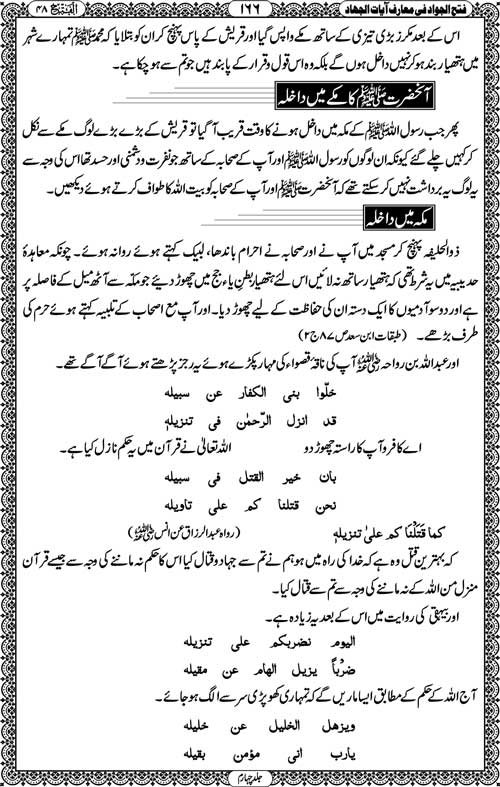 فتح الجواد فی معارف آیات الجهاد ۱۶۶ الفتح ۴۸
اس کے بعد مکرز بڑی تیزی کے ساتھ مکے واپس گیا اور قریش کے پاس پہنچ کر ان کو بتلایا کہ محمد ﷺ تمہارے شہر
میں ہتھیار بند ہو کر نہیں داخل ہوں گے بلکہ وہ اس قول و قرار کے پابند ہیں جو تم سے ہو چکا ہے۔
آنحضرت ﷺ کا مکے میں داخلہ
پھر جب رسول اللہ ﷺ کے مکہ میں داخل ہونے کا وقت قریب آ گیا تو قریش کے بڑے بڑے لوگ مکے سے نکل
کر کہیں چلے گئے کیونکہ ان لوگوں کو رسول اللہ ﷺ اور آپ کے صحابہ کے ساتھ جو نفرت و دشمنی اور حسد تھا اس کی وجہ سے
یہ لوگ یہ برداشت نہیں کر سکتے تھے کہ آنحضرت ﷺ اور آپ کے صحابہ کو بیت اللہ کا طواف کرتے ہوئے دیکھیں۔
مکہ میں داخلہ
ذوالحلیفہ پہنچ کر مسجد میں آپ نے اور صحابہ نے احرام باندھا، لبیک کہتے ہوئے روانہ ہوئے۔ چونکہ معاہدۂ
حدیبیہ میں یہ شرط تھی کہ ہتھیار ساتھ نہ لائیں اس لئے ہتھیار بطن یاجج میں چھوڑ دیئے جو مکہ سے آٹھ میل کے فاصلہ پر
ہے اور دو سو آدمیوں کا ایک دستہ ان کی حفاظت کے لیے چھوڑ دیا۔ اور آپ مع اصحاب کے تلبیہ کہتے ہوئے حرم کی
طرف بڑھے۔ (طبقات ابن سعد ص ۸۷ ج ۲)
اور عبداللہ بن رواحہ رضی اللہ عنہ آپ کی ناقہ قصواء کی مہار پکڑے ہوئے یہ رجز پڑھتے ہوئے آگے آگے تھے۔
خلّوا بنی الکفار عن سبیله
قد انزل الرّحمٰن فی تنزیلهٖ
اے کافرو آپ کا راستہ چھوڑ دو اللہ تعالیٰ نے قرآن میں یہ حکم نازل کیا ہے۔
بان خیر القتل فی سبیله
نحن قتلنا کم علی تاویله
کما قَتَلْنا کم علیٰ تنزیلهٖ (رواہ عبد الرزاق عن انس رضی اللہ عنہ)
کہ بہترین قتل وہ ہے کہ خدا کی راہ میں ہو ہم نے تم سے جہاد و قتال کیا اس کا حکم نہ ماننے کی وجہ سے جیسے قرآن
منزل من اللہ کے نہ ماننے کی وجہ سے تم سے قتال کیا۔
اور بیہقی کی روایت میں اس کے بعد یہ زیادہ ہے۔
الیوم نضربکم علی تنزیله
ضرباً یزیل الهام عن مقیله
آج اللہ کے حکم کے مطابق ایسا ماریں گے کہ تمہاری کھوپڑی سر سے الگ ہو جائے۔
ویزهل الخلیل عن خلیله
یارب انی مؤمن بقیله
جلد چہارم